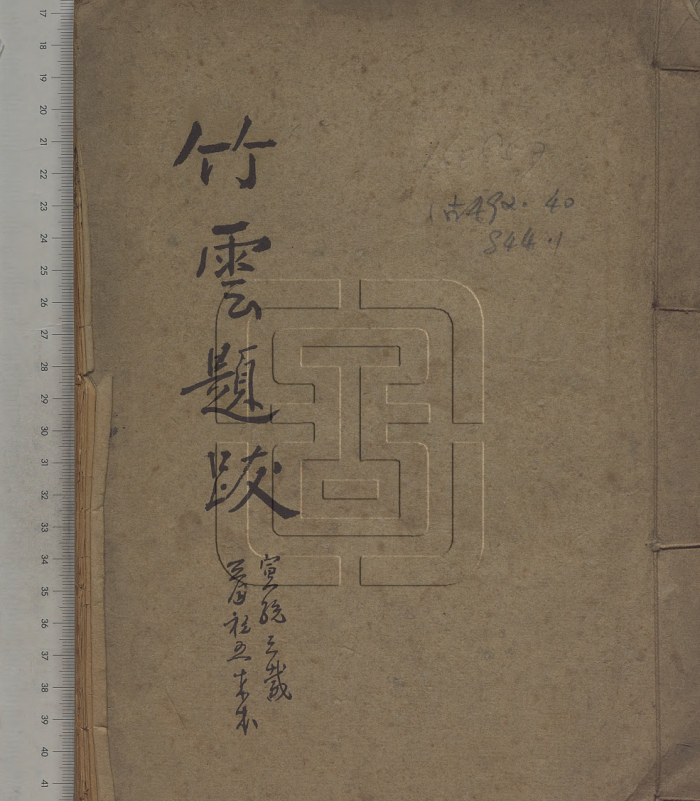 竹雲題跋
宣統三載
古492.40
844.1
17
18
19
20
21
22
23
24
25
26
27
28
29
30
31
32
33
34
35
36
37
38
39
40
41